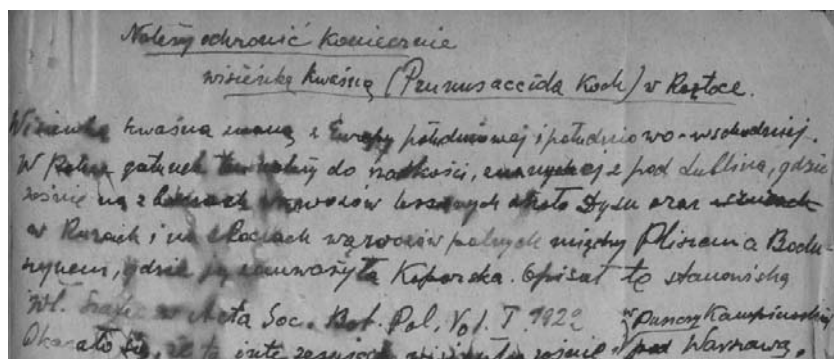 Należy ochronić koniecznie
wisieńkę kwaśną (Prunus accida Koch) w Roztoce.
Wisieńka kwaśna znana z Europy południowej i południowo-wschodniej.
W Polsce gatunek ten należy do rzadkości, z pod Lublina, gdzie
rośnie na zboczach wąwozów lessowych około Dysu oraz
w Rurach i na zboczach wąwozów polnych między Pliszczynem a Bodu-
szynem, gdzie ją zauważyła Koporska. Opisał te stanowiska
Wł. Szafer w Acta Soc. Bot. Pol. Vol. I 1922
w Puszczy Kampinoskiej
Okazało się, że ta rośnie pod Warszawą,